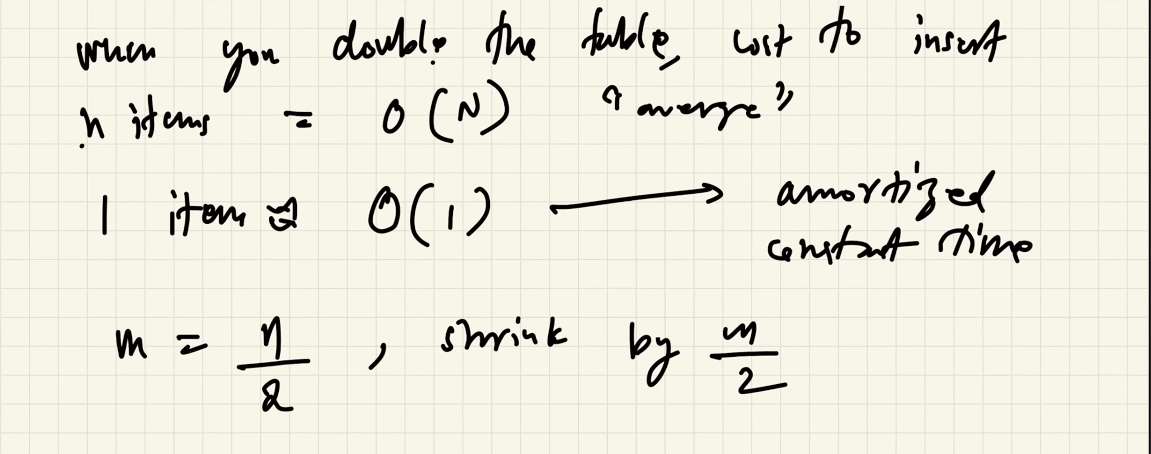 when you double the table, cost to insert
n items = O(N) "average"
1 item ≈ O(1) → amortized
constant time
m = n/2, shrink by m/2